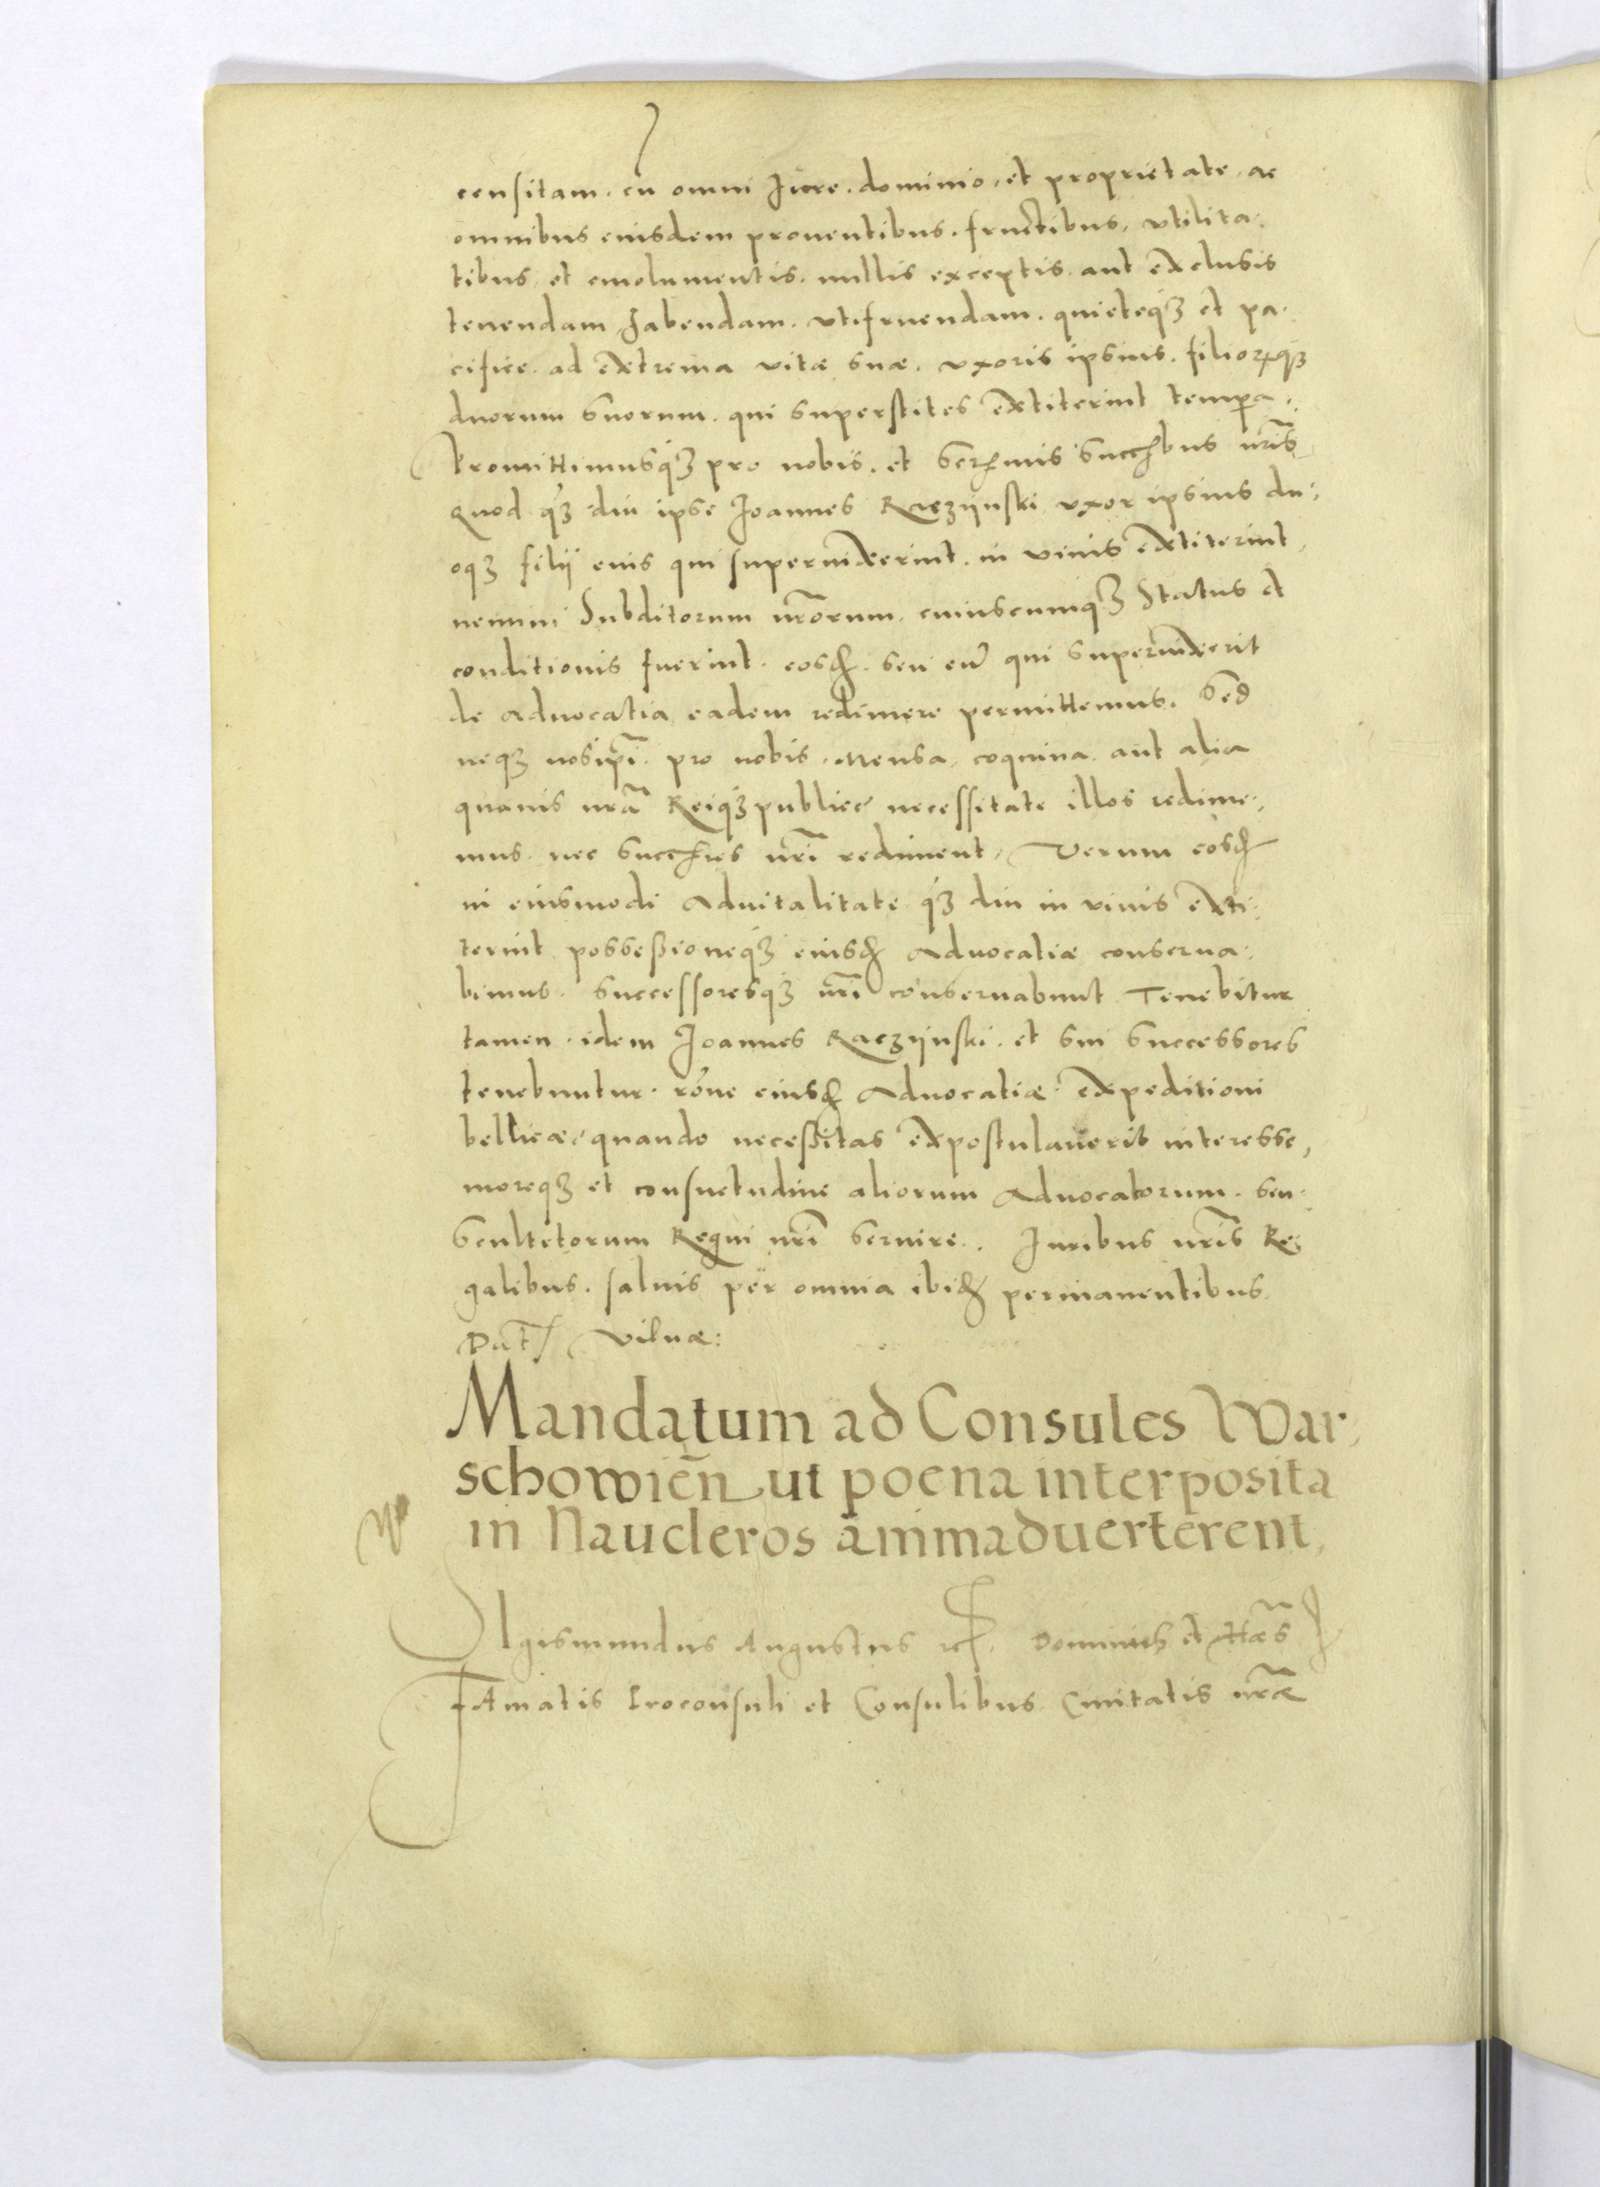 censitam. cū omni Jure. dominio. et proprietate. ac
omnibus eiusdem prouentibus. fructibus. vtilita-
tibus. et emolumentis. nullis exceptis. aut exclusis
tenendam habendam. vtifruendam. quieteq́ꝫ et pa-
cifice. ad extrema vitæ suæ. vxoris ipsius. filiorꝫq́ꝫ
duorum suorum. qui superstites extiterint tempora.
Promittimusq́ꝫ pro nobis. et Sermis Succribus nr̃is
Quod q́ꝫ diu ipse Joannes Raczijnski vxor ipsius du-
oqꝫ filij eius qui superuixerint. in viuis extiterint,
nemini Subditorum nr̃orum. cuiuscumqꝫ Status et
conditionis fuerint. eosd. seu eū qui superuixerit
de aduocatia eadem redimere permittemus. Sed
neqꝫ nosipi. pro nobis. Mensa. coquina. aut alia
quauis nr̃a Reiq́ꝫpublice necessitate illos redime-
mus. nec Succres nr̃i rediment, Verum eosd
in eiusmodi Aduitalitate q́ꝫ diu in viuis exti-
terint possessioneq́ꝫ eiusd Aduocatiæ conserua-
bimus. Successoresq́ꝫ nr̃i conseruabunt. Tenebitur
tamen. idem Joannes Raczijnski. et sui successores
tenebuntur. rõne eiusd Aduocatiæ. expeditioni
bellicæ. quando necessitas expostulauerit interesse,
moreqꝫ et consuetudine aliorum Aduocatorum. seu
Scultetorum Regni nr̃i Seruire. Juribus nr̃is Re-
galibus. saluis per omnia ibid permanentibus.
Dat Vilnæ:
Mandatum ad Consules War-
schowień ut poena interposita
in Naucleros animaduerterent,
SIgismundus Augustus Dominis et Hæs
FAmatis Proconsuli et Consulibus Ciuitatis nr̃æ